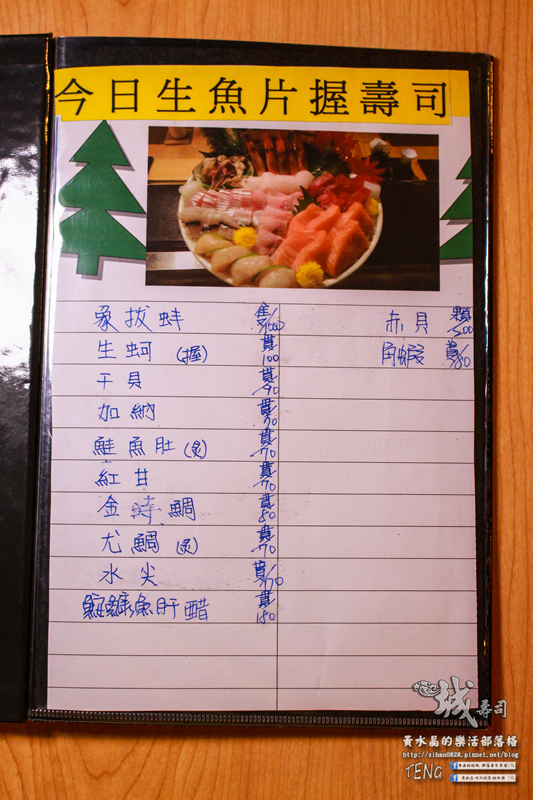 今日生魚片握壽司
象拔蚌 隻/1000
生蚵(握) 貫/100
干貝 貫/90
加納 貫/70
鮭魚肚(炙) 貫/70
紅甘 貫/70
金時鯛 貫/80
尤鯛(炙) 貫/70
水尖 貫/70
鮟鱇魚肝醋 貫/180
赤貝 顆/300
角蝦 貫/80
城壽司
黃水晶的樂活部落格
http://sihan0828.pixnet.net/blog
TENG